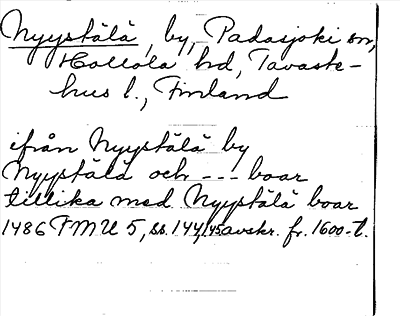 Nyystälä, by, Padasjoki sn,
Hollola hd, Tavaste-
hus l., Finland
ifrån Nyystälä by
Nyystälä och --- boar
tillika med Nyystälä boar
1486 FMU 5, ss. 144, 145 avskr. fr. 1600-t.